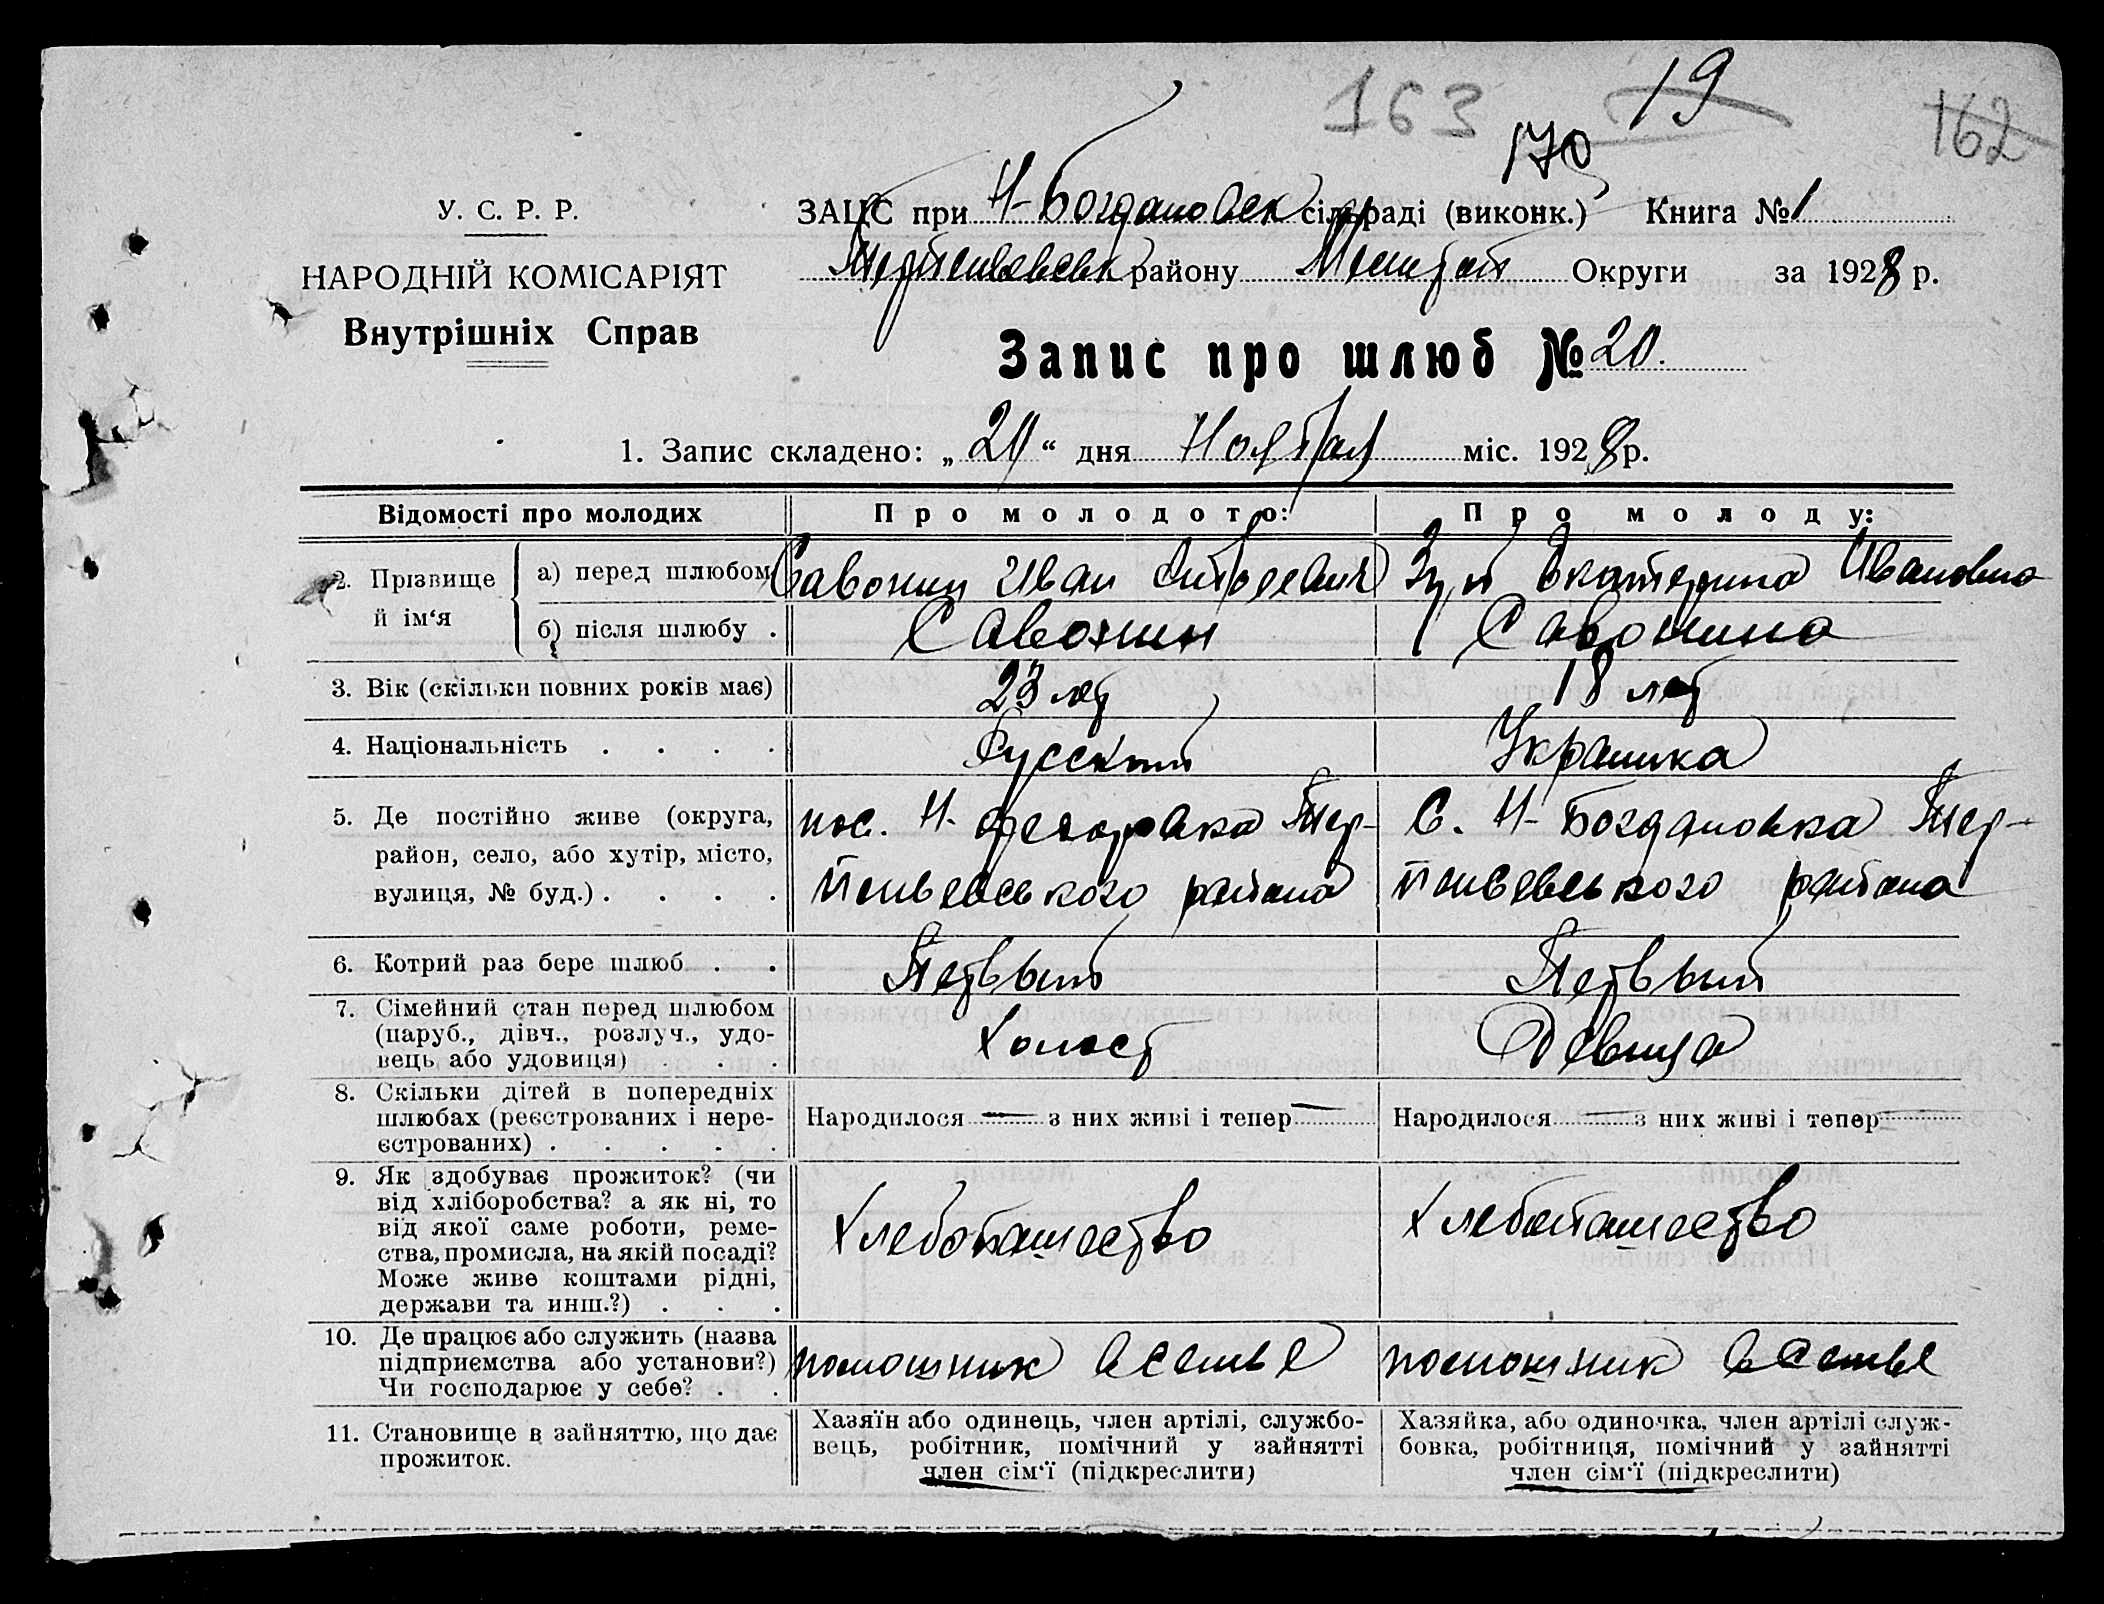 163 19
170 162
У. С. Р. Р.
НАРОДНІЙ КОМІСАРІЯТ
Внутрішніх Справ
ЗАЦС при Н-Богдановск сільраді (виконк.) Книга № 1
району Округи за 1928 р.
Запис про шлюб № 20.
1. Запис складено: „ “ дня Ноября міс. 1928 р.
Відомості про молодих
Про молодого:
Про молоду:
2. Прізвище й ім‘я
а) перед шлюбом
Савонин Иван
Екатерина Ивановна
б) після шлюбу .
Савонин
Савонина
3. Вік (скільки повних років має)
23 лет
18 лет
4. Національність . . . .
Русский
Украинка
5. Де постійно живе (округа,
район, село, або хутір, місто,
вулиця, № буд.) . . . .
пос. Н-
района
С. Н-Богдановка
района
6. Котрий раз бере шлюб . .
Первый
Первый
7. Сімейний стан перед шлюбом
(паруб., дівч., розлуч., удо-
вець або удовиця) . . .
Холост
Девица
8. Скільки дітей в попередніх
шлюбах (реєстрованих і нере-
єстрованих) . . . . .
Народилося — з них живі і тепер —
Народилося — з них живі і тепер —
9. Як здобуває прожиток? (чи
від хліборобства? а як ні, то
від якої саме роботи, реме-
ства, промисла, на якій посаді?
Може живе коштами рідні,
держави та инш.?) . . .
Хлебопашество
Хлебопашество
10. Де працює або служить (назва
підприємства або установи?)
Чи господарює у себе? . .
помошник в семье
помошник в семье
11. Становище в зайняттю, що дає
прожиток.
Хазяїн або одинець, член артілі, службо-
вець, робітник, помічний у зайнятті
член сім‘ї (підкреслити)
Хазяйка, або одиночка, член артілі служ-
бовка, робітниця, помічний у зайнятті
член сім‘ї (підкреслити)